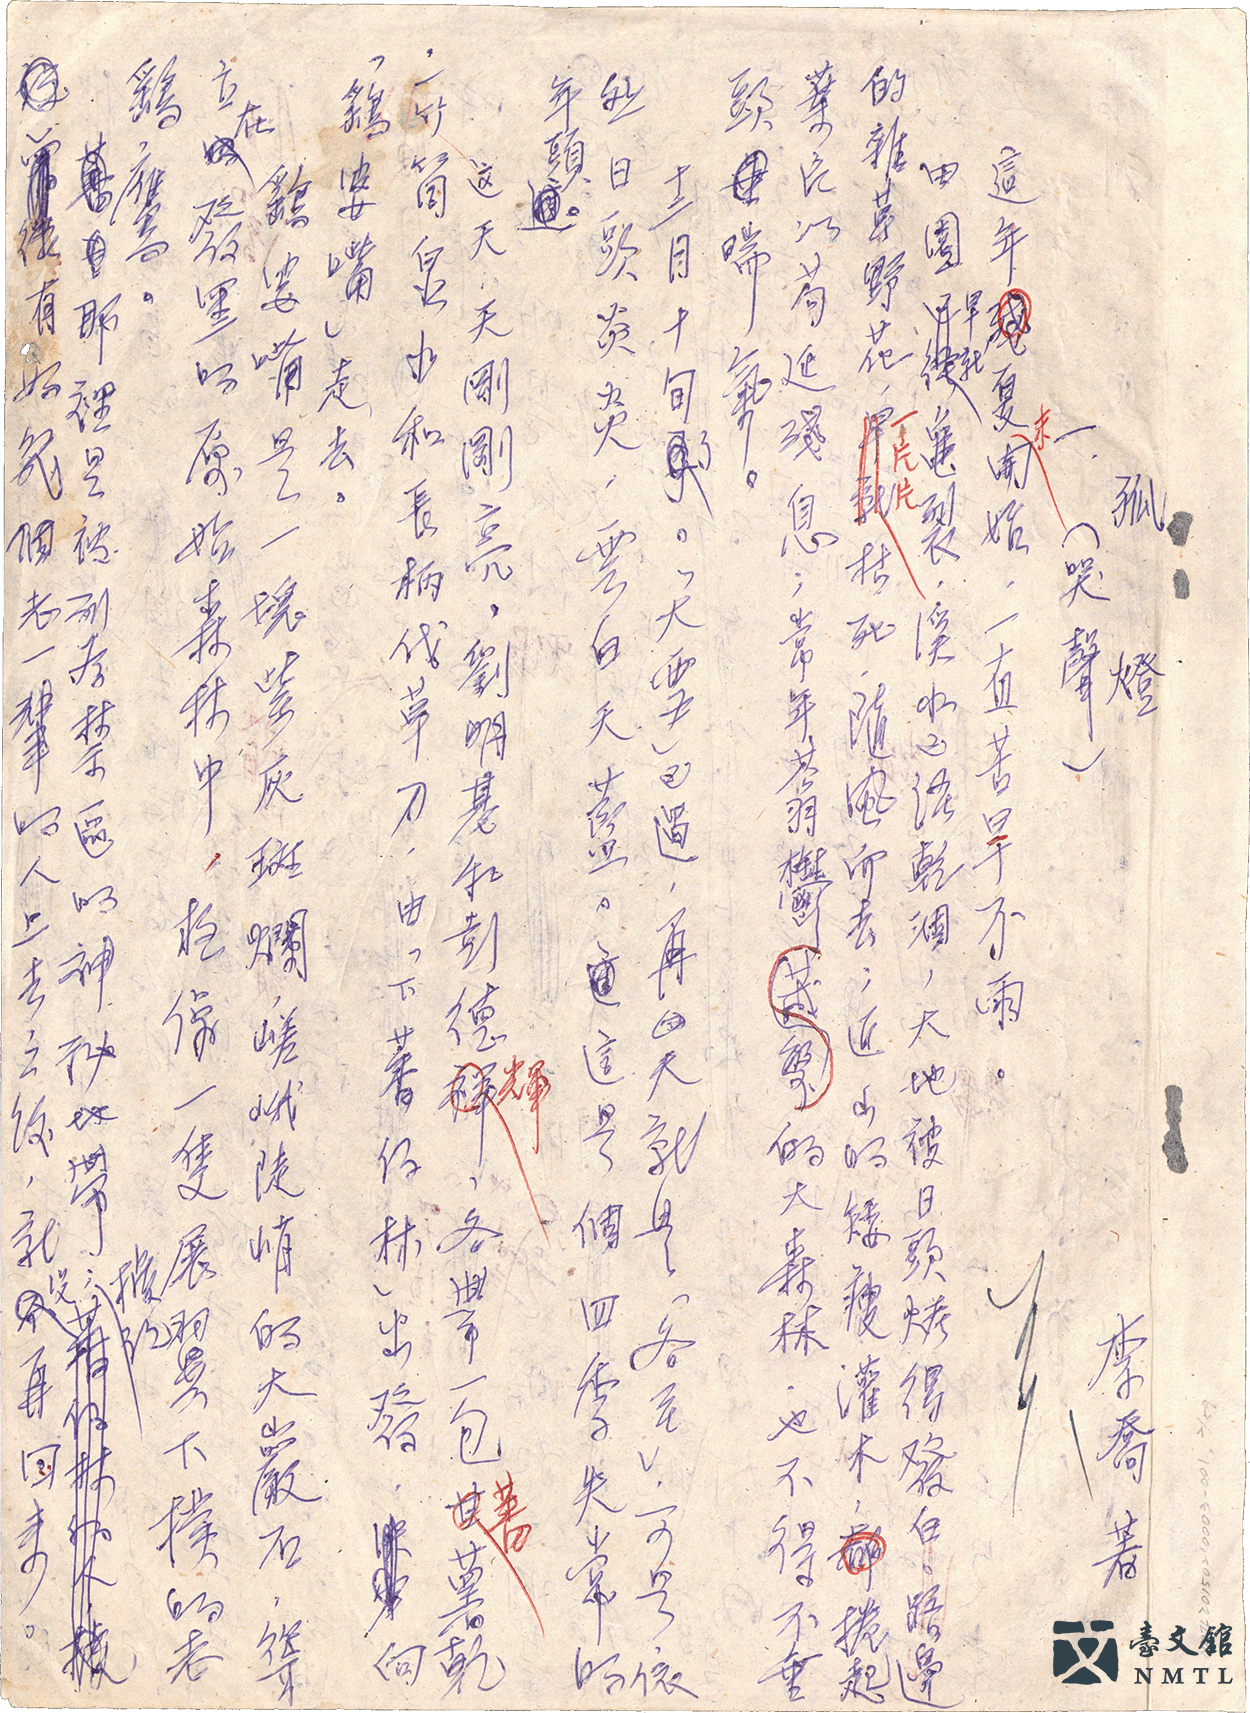 孤燈
李喬著
一、（哭聲）
這年夏末開始，一直苦旱不雨。
田園早就龜裂，溪水已涸乾涸，大地被日頭烤得發白。路邊
的雜草野花，一片片枯死，隨風而去；近山的矮瘦灌木，捲起
葉片以苟延殘息；常年蒼翁樹鬱的大森林，也不得不垂
頭喘氣。
十二月十旬了。「大雪」已過，再四天就是「冬至」，可是依
然日頭炎炎，雲白天藍。這是個四季失常的
年頭。
这天，天剛剛亮，劉明基和彭德輝，各帶一包蕃薯乾
，一竹筒泉水和長柄伐草刀，由「下蕃仔林」出發，向
「鷂婆嘴」走去。
鷂婆嘴是一塊紫灰斑爛，嵯峨陡峭的大巖石，聳
立在發墨的原始森林中，極像一隻展翼下撲的老
鷂鷹。
那裡是被列為禁區的神秘地帶；據說
從前有好幾個老一輩的人上去之後，就沒再回來。
臺文館
NMTL